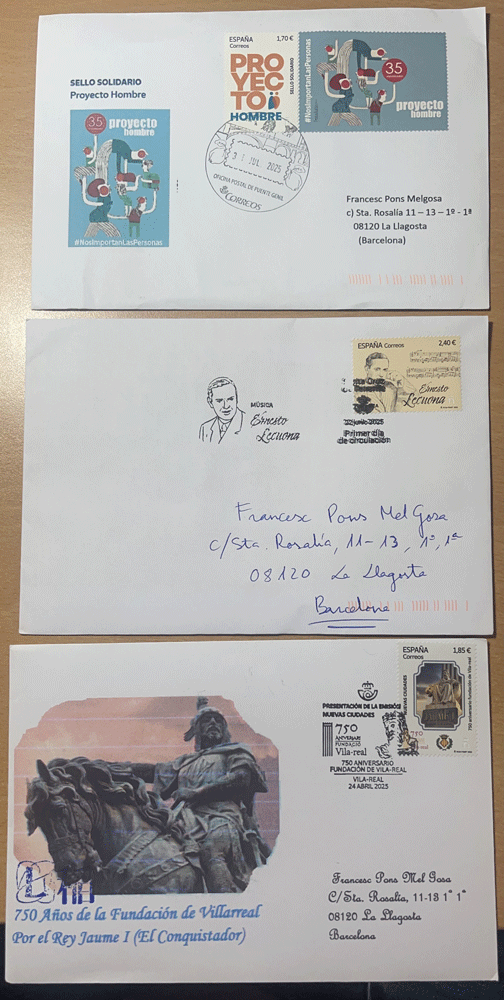 SELLO SOLIDARIO
Proyecto Hombre
35
proyecto
hombre
#NosImportanLasPersonas
ESPAÑA
Correos
1,70 €
PRO
YEC
TO
HOMBRE
SELLO SOLIDARIO
#NosImportanLasPersonas
35
proyecto
hombre
31 JUL. 2025
OFICINA POSTAL DE PUENTE GENIL
CORREOS
Francesc Pons Melgosa
c) Sta. Rosalía 11 – 13 – 1º - 1ª
08120 La Llagosta
(Barcelona)
ESPAÑA Correos
2,40 €
Ernesto
Lecuona
MÚSICA
Ernesto
Lecuona
junio 2025
Primer día
de circulación
Francesc Pons Mel Gosa
c/Sta. Rosalía, 11-13, 1º, 1ª
08120 La Llagosta
Barcelona
ESPAÑA
Correos
1,85 €
NUEVAS CIUDADES
750 aniversario fundación de Vila-real
PRESENTACIÓN DE LA EMISIÓN
NUEVAS CIUDADES
750
ANIVERSARI
FUNDACIÓ
Vila-real
750 ANIVERSARIO
FUNDACIÓN DE VILA-REAL
VILA-REAL
24 ABRIL 2025
750 Años de la Fundación de Villarreal
Por el Rey Jaume I (El Conquistador)
Francesc Pons Mel Gosa
C/Sta. Rosalía, 11-13 1º 1ª
08120 La Llagosta
Barcelona